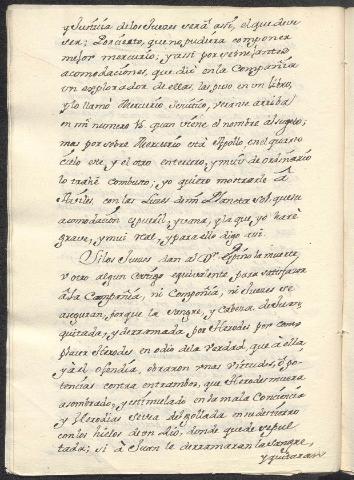 y Justicia de los Jueces será assi, el que deve
ser; Porcierto, que no pudiera componer
mejor mercurio; y assi por ver semejantes
acomodaciones, que dió en la Compañia
un explorador de ellas, las puso en un libro,
y lo llamó Mercurio, Sencillo, vease arriba
en mi numero 16 quan viene el nombre al sugeto;
mas por sobre Mercurio está Apollo, en el quarto
cielo este, y el otro en tercero, y muy de ordinario
lo trahe combusto; yo quiero mostrarle á
con las Luces de mi Planeta sol, que su
acomodación es pueril, y vana, y la que yo haré
grave, y mui real, y para ello digo assi.
Si los Jueces dan al Dr Espino la muerte,
u otro algun Castigo equivalente para satisfacer
á la Compañia, ni Compañia, ni Jueces se
aseguran, porque la sangre, y Cabeza de Juan,
quitada, y derramada por Herodes por com
placer Herodes, en odio de la Verdad, que á ella
y á él ofendia, obraron unas virtudes, ó po-
tencias contra entrambos, que Herodes muera
asombrado, y estimulado en la mala Conciencia
y Herodias sea degollada en su destierro
con los hielos de un Rio, donde quede sepul
tada; si á Juan le derramaran la sangre,
y quitaran